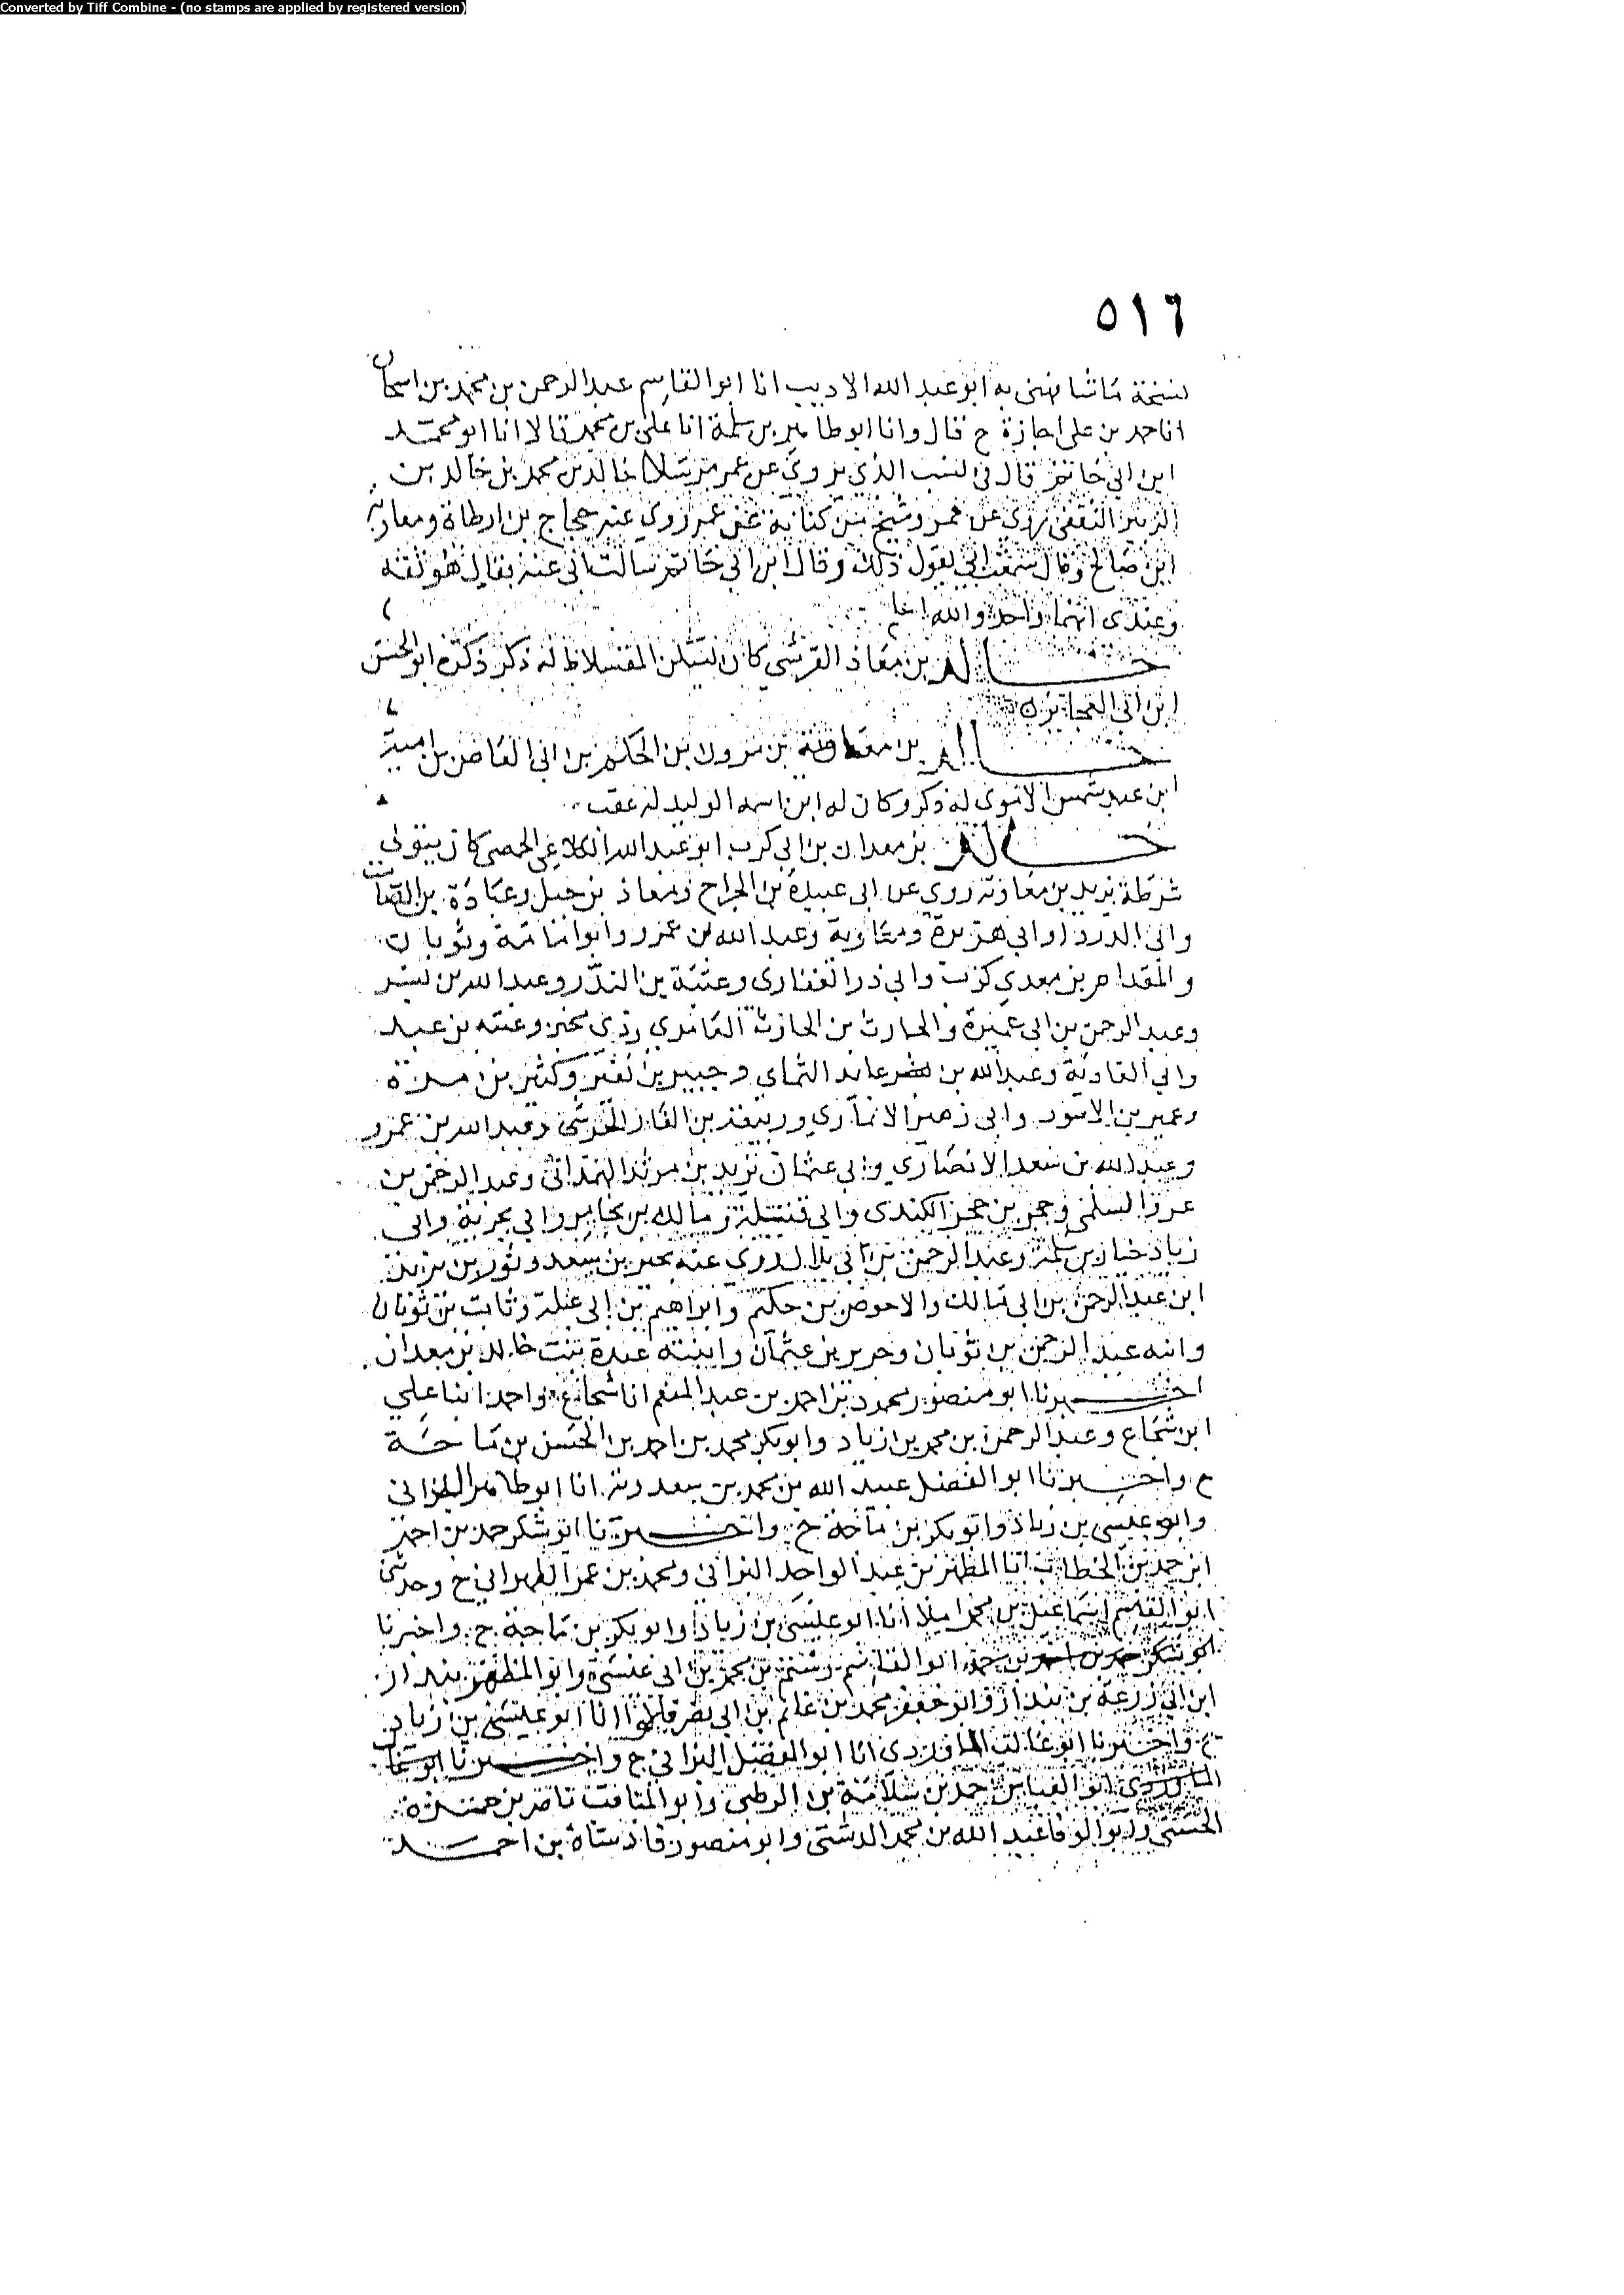 Converted by Tiff Combine - (no stamps are applied by registered version)
٥١٦
نسخة ما شافهني به ابو عبد الله الاديب انا ابو القاسم عبد الرحمن بن محمد بن اسحاق
انا حمد بن علي اجازة ح قال وانا ابو طاهر بن سلمة انا علي بن محمد قالا انا ابو محمد
ابن ابي حاتم قال في لنسب الذي يروي عن عمر مرسلا خالد بن محمد بن خالد بن
الزبير الثقفي يروي عن عمر وشيخ من كنانة عن عمر روي عنه حجاج بن ارطاة ومعاوية
ابن صالح وقال سمعت ابي يقول ذلك وقال ابن ابي حاتم سالت ابي عنه فقال هو ثقه
وعندي انهما واحد والله اعلم
خالد بن معاذ القرشي كان يسكن المقسلاط له ذكر ذكره ابو الحسن
ابن ابي العجايز ه
خالد بن معاوية بن مرون بن الحكم بن ابي العاص بن امية
ابن عبد شمس الاموي له ذكر وكان له ابن اسمه الوليد له عقب
خالد بن معدان بن ابي كرب ابو عبد الله الكلاعي الحمصي كان يتولى
شرطة يزيد بن معاوية روي عن ابي عبيدة بن الجراح ومعاذ بن جبل وعبادة بن الصامت
وابي الدردا وابي هريرة ومعاوية وعبد الله بن عمرو وابو امامة وثوبان
والمقدام بن معدي كرب وابي ذر الغفاري وعتبة بن الندر وعبد الله بن بسر
وعبد الرحمن بن ابي عميرة والحارث بن الحارث الغامدي وذي مخبر وعتبه بن عبد
وابي الغادية وعبد الله بن عايذ الثمالي وجبير بن نفير وكثير بن مرة
وعمير بن الاسود وابي زهير الانماري وربيعة بن الغاز الجرشي وعبد الله بن عمرو
وعبد الله بن سعد الانصاري وابي عثمان يزيد بن مرثد الهمداني وعبد الرحمن بن
عمرو السلمي وحجر بن حجر الكندي وابي قتيلة ومالك بن يخامر وابي بحرية وابي
زياد خيار بن سلمة وعبد الرحمن بن ابي بلال روي عنه بحير بن سعد وثور بن يزيد
ابن عبد الرحمن بن ابي مالك والاحوص بن حكيم وابراهيم بن ابي عبلة وثابت بن ثوبان
وابنه عبد الرحمن بن ثوبان وحريز بن عثمان وابنته عبدة بنت خالد بن معدان
اخبرنا ابو منصور محمود بن احمد بن عبد المنعم انا شجاع واحمد ابنا علي
ابن شجاع وعبد الرحمن بن محمد بن زياد وابو بكر محمد بن احمد بن الحسن بن ماجة
ح واخبرنا ابو الفضل عبيد الله بن محمد بن سعدويه انا ابو طاهر
وابو عيسى بن زياد وابو بكر بن ماجة ح واخبرنا ابو شكر حمد بن احمد
ابن حمد بن الخطاب انا المطهر بن عبد الواحد البزاني ومحمد بن عمر الطهراني ح وحدثني
ابو القسم اسماعيل بن محمد املا انا ابو عيسى بن زياد وابو بكر بن ماجة ح واخبرنا
ابو شكر حمد بن احمد بن حمد ابو القاسم رستم بن محمد بن ابي عيسى وابو المطهر بندار
ابن ابي زرعة بن بندار وابو جعفر محمد بن غانم بن ابي نصر قالوا انا ابو عيسى بن زياد
ح واخبرنا ابو غالب الماوردي انا ابو الفضل البزاني ح واخبرنا ابو غالب
الماوردي ابو العباس احمد بن سلامة بن الرطبي وابو المناقب ناصر بن حمزة
الحسني وابو الوفا عبد الله بن محمد الدشتي وابو منصور فاذشاه بن احمد